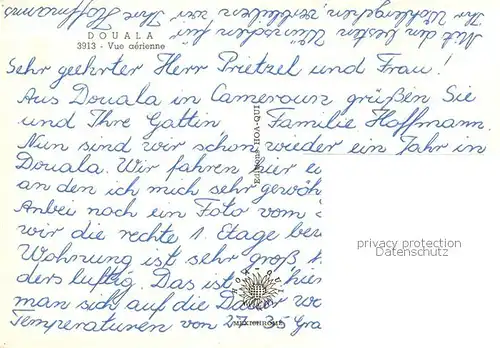 Mit den besten Wünschen für
Ihr Wohlergehen verbleiben wir Ihre Hoffmanns
DOUALA
3913 - Vue aérienne
Sehr geehrter Herr Prietzel und Frau!
Aus Douala in Cameroun grüßen Sie
und Ihre Gattin Familie Hoffmann.
Nun sind wir schon wieder ein Jahr in
Douala. Wir fahren hier ei
an den ich mich sehr gewöh
Anbei noch ein Foto vom
wir die rechte 1. Etage bew
Wohnung ist sehr groß
ders luftig. Das ist hier
man sich auf die Dauer wo
Temperaturen von 27-35 Gra
Editions HOA-QUI
HOA-QUI
MEXICHROME
privacy protection
Datenschutz